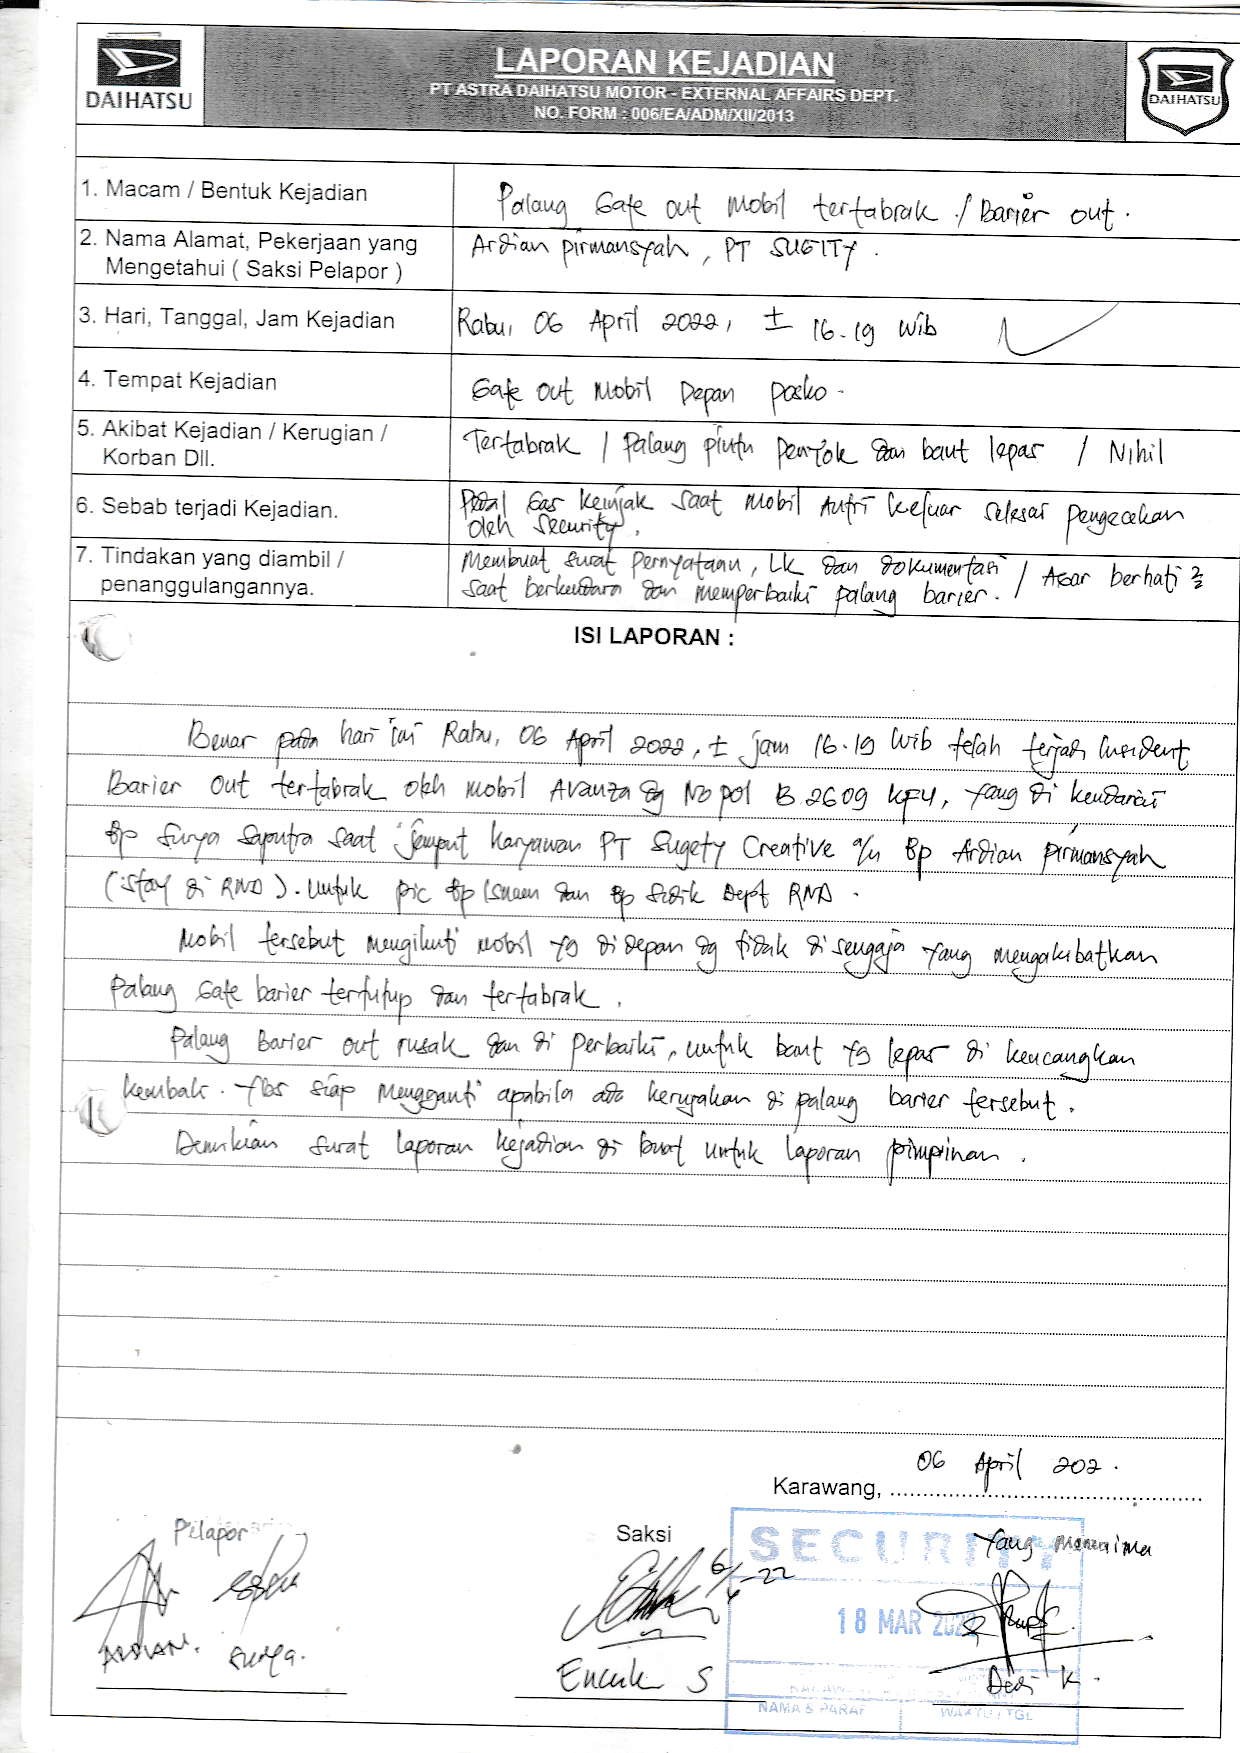 DAIHATSU
LAPORAN KEJADIAN
PT ASTRA DAIHATSU MOTOR - EXTERNAL AFFAIRS DEPT.
NO. FORM : 006/EA/ADM/XII/2013
DAIHATSU
1. Macam / Bentuk Kejadian
Palang Gate out Mobil tertabrak / Barier out.
2. Nama Alamat, Pekerjaan yang
Mengetahui ( Saksi Pelapor )
Ardian pirmansyah, PT SUGITY.
3. Hari, Tanggal, Jam Kejadian
Rabu, 06 April 2022, ± 16.19 Wib
4. Tempat Kejadian
Gate out Mobil Depan posko.
5. Akibat Kejadian / Kerugian /
Korban Dll.
Tertabrak / palang pintu penyok dan baut lepas / Nihil
6. Sebab terjadi Kejadian.
Pedal Gas keinjak saat mobil Antri keluar selesai pengecekan
oleh security.
7. Tindakan yang diambil /
penanggulangannya.
Membuat surat pernyataan, LK dan dokumentasi / Agar berhati2
saat berkendara dan memperbaiki palang barier.
ISI LAPORAN :
Benar pada hari ini Rabu, 06 April 2022, ± jam 16.19 Wib telah terjadi insident
Barier out tertabrak oleh mobil Avanza dg No pol B 2609 KFU, yang di kendarai
Bp Surya Saputra saat jemput karyawan PT Sugety Creative a/n Bp Ardian pirmansyah
(stay di RND). untuk pic Bp Isnaen dan Bp Sidik Dept RND.
Mobil tersebut mengikuti mobil yg didepan dg tidak disengaja yang mengakibatkan
palang Gate barier tertutup dan tertabrak.
Palang Barier out rusak dan di perbaiki, untuk baut yg lepas di kencangkan
kembali. Ybs siap mengganti apabila ada kerusakan di palang barier tersebut.
Demikian surat laporan kejadian di buat untuk laporan pimpinan.
06 April 202.
Karawang, ..........
Pelapor
Saksi
Yang menerima
SECURITY
6/4-22
18 MAR 2022
ARDIAN.
Surya.
Encuk S
Dedi K.
NAMA & PARAF
WAKTU / TGL